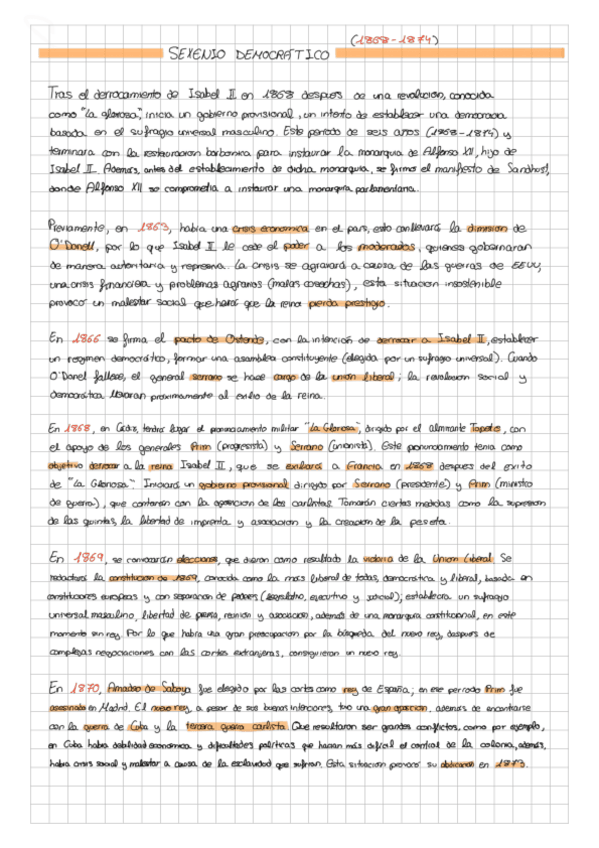 (1868-1874)
SEXENIO DEMOCRÁTICO
Tras el derrocamiento de Isabel II en 1868 despues de una revolucion, conocida
como "La gloriosa", inicia un gobierno provisional, un intento de establecer una democracia
basada en el sufragio universal masculino. Este periodo de seis años (1868-1874) y
terminara con la restauracion borbonica para instaurar la monarquia de Alfonso XII, hijo de
Isabel II. Ademas, antes del establecimiento de dicha monarquia, se firma el manifiesto de Sandhurst,
donde Alfonso XII se comprometia a instaurar una monarquia parlamentaria.
Previamente, en 1863, habia una crisis economica en el pais, esto conllevará la dimision de
O'Donell, por lo que Isabel II le cede el poder a los moderados, quienes gobernaran
de manera autoritaria y represiva. La crisis se agravará a causa de las guerras de EEUU,
una crisis financiera y problemas agrarios (malas cosechas), esta situacion insostenible
provocó un malestar social que hará que la reina pierda prestigio.
En 1866 se firma el pacto de Ostende, con la intención de derrocar a Isabel II, establecer
un regimen democrático, formar una asamblea constituyente (elegida por un sufragio universal). Cuando
O'Donel fallece, el general serrano se hace cargo de la union liberal; la revolucion social y
democratica llevaran proximamente al exilio de la reina.
En 1868, en Cadiz, tendra lugar el pronunciamiento militar "La Gloriosa", dirigido por el almirante Topete, con
el apoyo de los generales Prim (progresista) y Serrano (unionista). Este pronunciamiento tenia como
objetivo derrocar a la reina Isabel II, que se exiliará a Francia en 1868 despues del exito
de "La Gloriosa". Iniciará un gobierno provisional dirigido por Serrano (presidente) y Prim (ministro
de guerra), que contaran con la oposicion de los carlistas. Tomarán ciertas medidas como la supresion
de las quintas, la libertad de imprenta y asociacion y la creacion de la peseta.
En 1869, se convocarán elecciones, que dieron como resultado la victoria de la Union Liberal. Se
redactará la constitucion de 1869, conocida como la mas liberal de todas, democratica y liberal, basada en
constituciones europeas y con separacion de poderes (legislativo, ejecutivo y judicial); establecera un sufragio
universal masculino, libertad de prensa, reunion y asociacion, ademas de una monarquia constitucional, en este
momento sin rey. Por lo que habia una gran preocupacion por la búsqueda del nuevo rey, despues de
complejas negociaciones con las cortes extranjeras, consiguieron un nuevo rey.
En 1870, Amadeo de Saboya fue elegido por las cortes como rey de España; en ese periodo Prim fue
asesinado en Madrid. El nuevo rey, a pesar de sus buenas intenciones, tuvo una gran oposicion, ademas de encontrarse
con la guerra de Cuba y la tercera guerra carlista. Que resultaron ser grandes conflictos, como por ejemplo,
en Cuba habia debilidad economica y dificultades politicas que hacian más dificil el control de la colonia, además,
habia crisis social y malestar a causa de la esclavitud que sufrian. Esta situacion provocó su abdicacion en 1873.